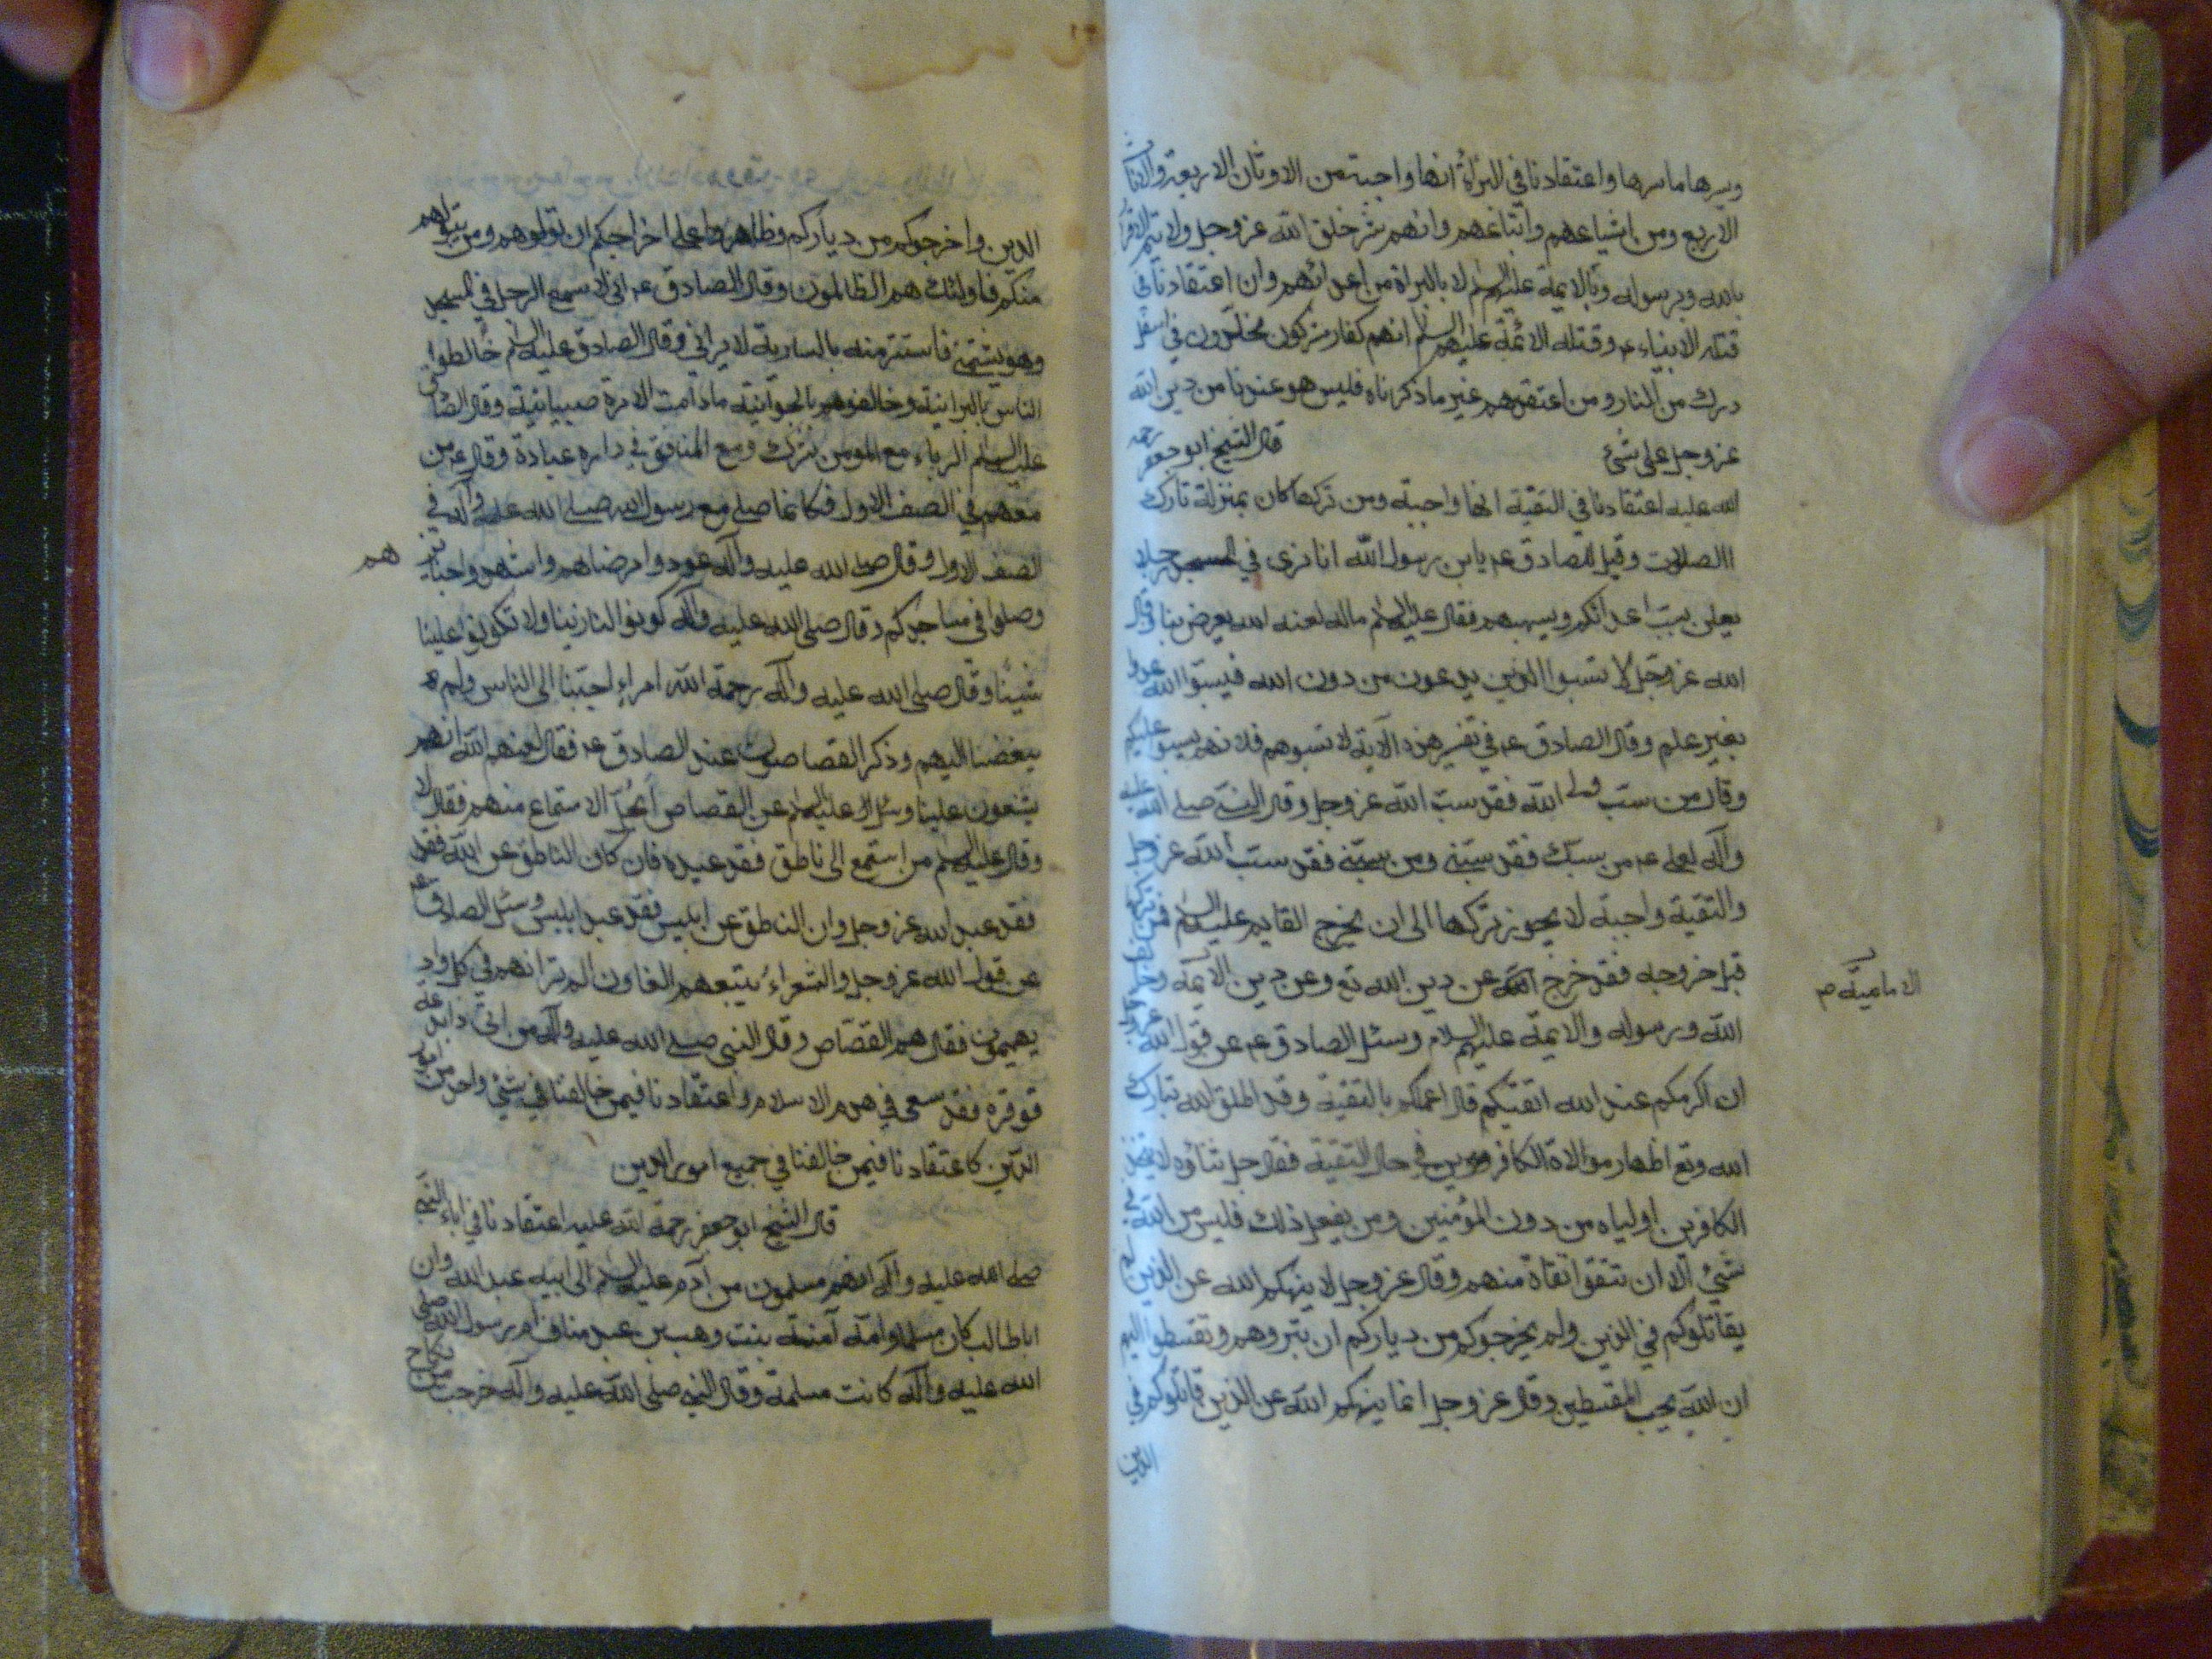 وسرها ما سرها واعتقادنا في البراءة انها واجبة من الاوثان الاربعة والاناث
الاربع ومن اشياعهم واتباعهم وانهم شر خلق الله عز وجل ولا يتم الاقرار
بالله وبرسوله وبالايمة عليهم السلام الا بالبراة من اعدائهم وان اعتقادنا في
قتلة الابنياء ع وقتلة الائمة عليهم السلام انهم كفار مشركون مخلدون في اسفل
درك من النار ومن اعتقد بهم غير ما ذكرناه فليس هو عندنا من دين الله
عز وجل على شئ قال الشيخ ابو جعفر رحمة
الله عليه اعتقادنا في التقية انها واجبة ومن تركها كان بمنزلة تارك
الصلوت وقيل للصادق ع يا بن رسول الله انا نرى في المسجد رجلا
يعلن بسب اعدائكم ويسبهم فقال عليه السلام ماله لعنه الله يعرض بنا وقال
الله عز وجل لا تسبوا الذين يدعون من دون الله فيسبوا الله عدوا
بغير علم وقال الصادق ع في تفسير هذه الآية لا تسبوهم فلانهم يسبوا عليكم
وقال من سب ولي الله فقد سب الله عز وجل وقال النبي صلى الله عليه
وآله لعلي ع من سبك فقد سبني ومن سبني فقد سب الله عز وجل
والتقية واجبة لا يجوز تركها الى ان يخرج القايم عليه السلام فمن تركها
قبل خروجه فقد خرج عن دين الله تع وعن دين الايمة وخالف
الامامية
الله ورسوله والايمة عليهم السلام وسئل الصادق ع عن قول الله عز وجل
ان اكرمكم عند الله اتقيكم قال اعملكم بالتقية وقد اطلق الله تبارك
الله وتع اظهار موالاة الكافرين في حال التقية فقال جل ثناؤه لا يتخذ
الكافرين اولياء من دون المؤمنين ومن يفعل ذلك فليس من الله في
شئ الا ان تتقوا منهم تقاة وقال عز وجل لا ينهيكم الله عن الذين لم
يقاتلوكم في الدين ولم يخرجوكم من دياركم ان تبروهم وتقسطوا اليهم
ان الله يحب المقسطين وقال عز وجل انما ينهيكم الله عن الذين قاتلوكم في
الدين
الدين واخرجوكم من دياركم وظاهروا على اخراجكم ان تولوهم ومن يتولهم
منكم فاولئك هم الظالمون وقال الصادق ع اني لاسمع الرجل في المسجد
وهو يشتمني فاستتر منه بالسارية لا يراني وقال الصادق عليه السلام خالطوا
الناس بالبرانية وخالفوهم بالجوانية ما دامت الامرة صبيانية وقال الصادق
عليه السلام الرياء مع المومن شرك ومع المنافق في داره عبادة وقال ع من
معهم في الصف الاول فكانما صلى مع رسول الله صلى الله عليه وآله في
الصف الاول وقال صلى الله عليه وآله عودوا مرضاهم واشهدوا جنايز
هم
وصلوا في مساجدكم وقال صلى الله عليه وآله كونوا لنا زينا ولا تكونوا علينا
شينا وقال صلى الله عليه وآله رحمة الله امراء احببنا الى الناس ولم
يبغضنا اليهم وذكر القصاصون عند الصادق ع فقال لعنهم الله انهم
يشنعون علينا وسئل عليه السلام عن القصاص أيحل الاستماع منهم فقال لا
وقال عليه السلام من استمع الى ناطق فقد عبده فان كان الناطق عن الله فقد
فقد عبد الله عز وجل وان الناطق عن ابليس فقد عبد ابليس وسئل الصادق ع
عن قول الله عز وجل والشعراء يتبعهم الغاون الم تر انهم في كل واد
يهيمون فقال هم القصاص وقال النبي صلى الله عليه وآله من اتى ذا بدعة
فوقره فقد سعى في هدم الاسلام واعتقادنا فيمن خالفنا في شئ واحد من امور
الدين كاعتقادنا فيمن خالفنا في جميع امور الدين
قال الشيخ ابو جعفر رحمة الله عليه اعتقادنا في اباء النبي
صلى الله عليه وآله انهم مسلمون من آدم عليه السلام الى ابيه عبد الله وان
ابا طالب كان مسلما وامه آمنة بنت وهب بن عبد مناف ام رسول الله صلى
الله عليه وآله كانت مسلمة وقال النبي صلى الله عليه وآله خرجت من نكاح